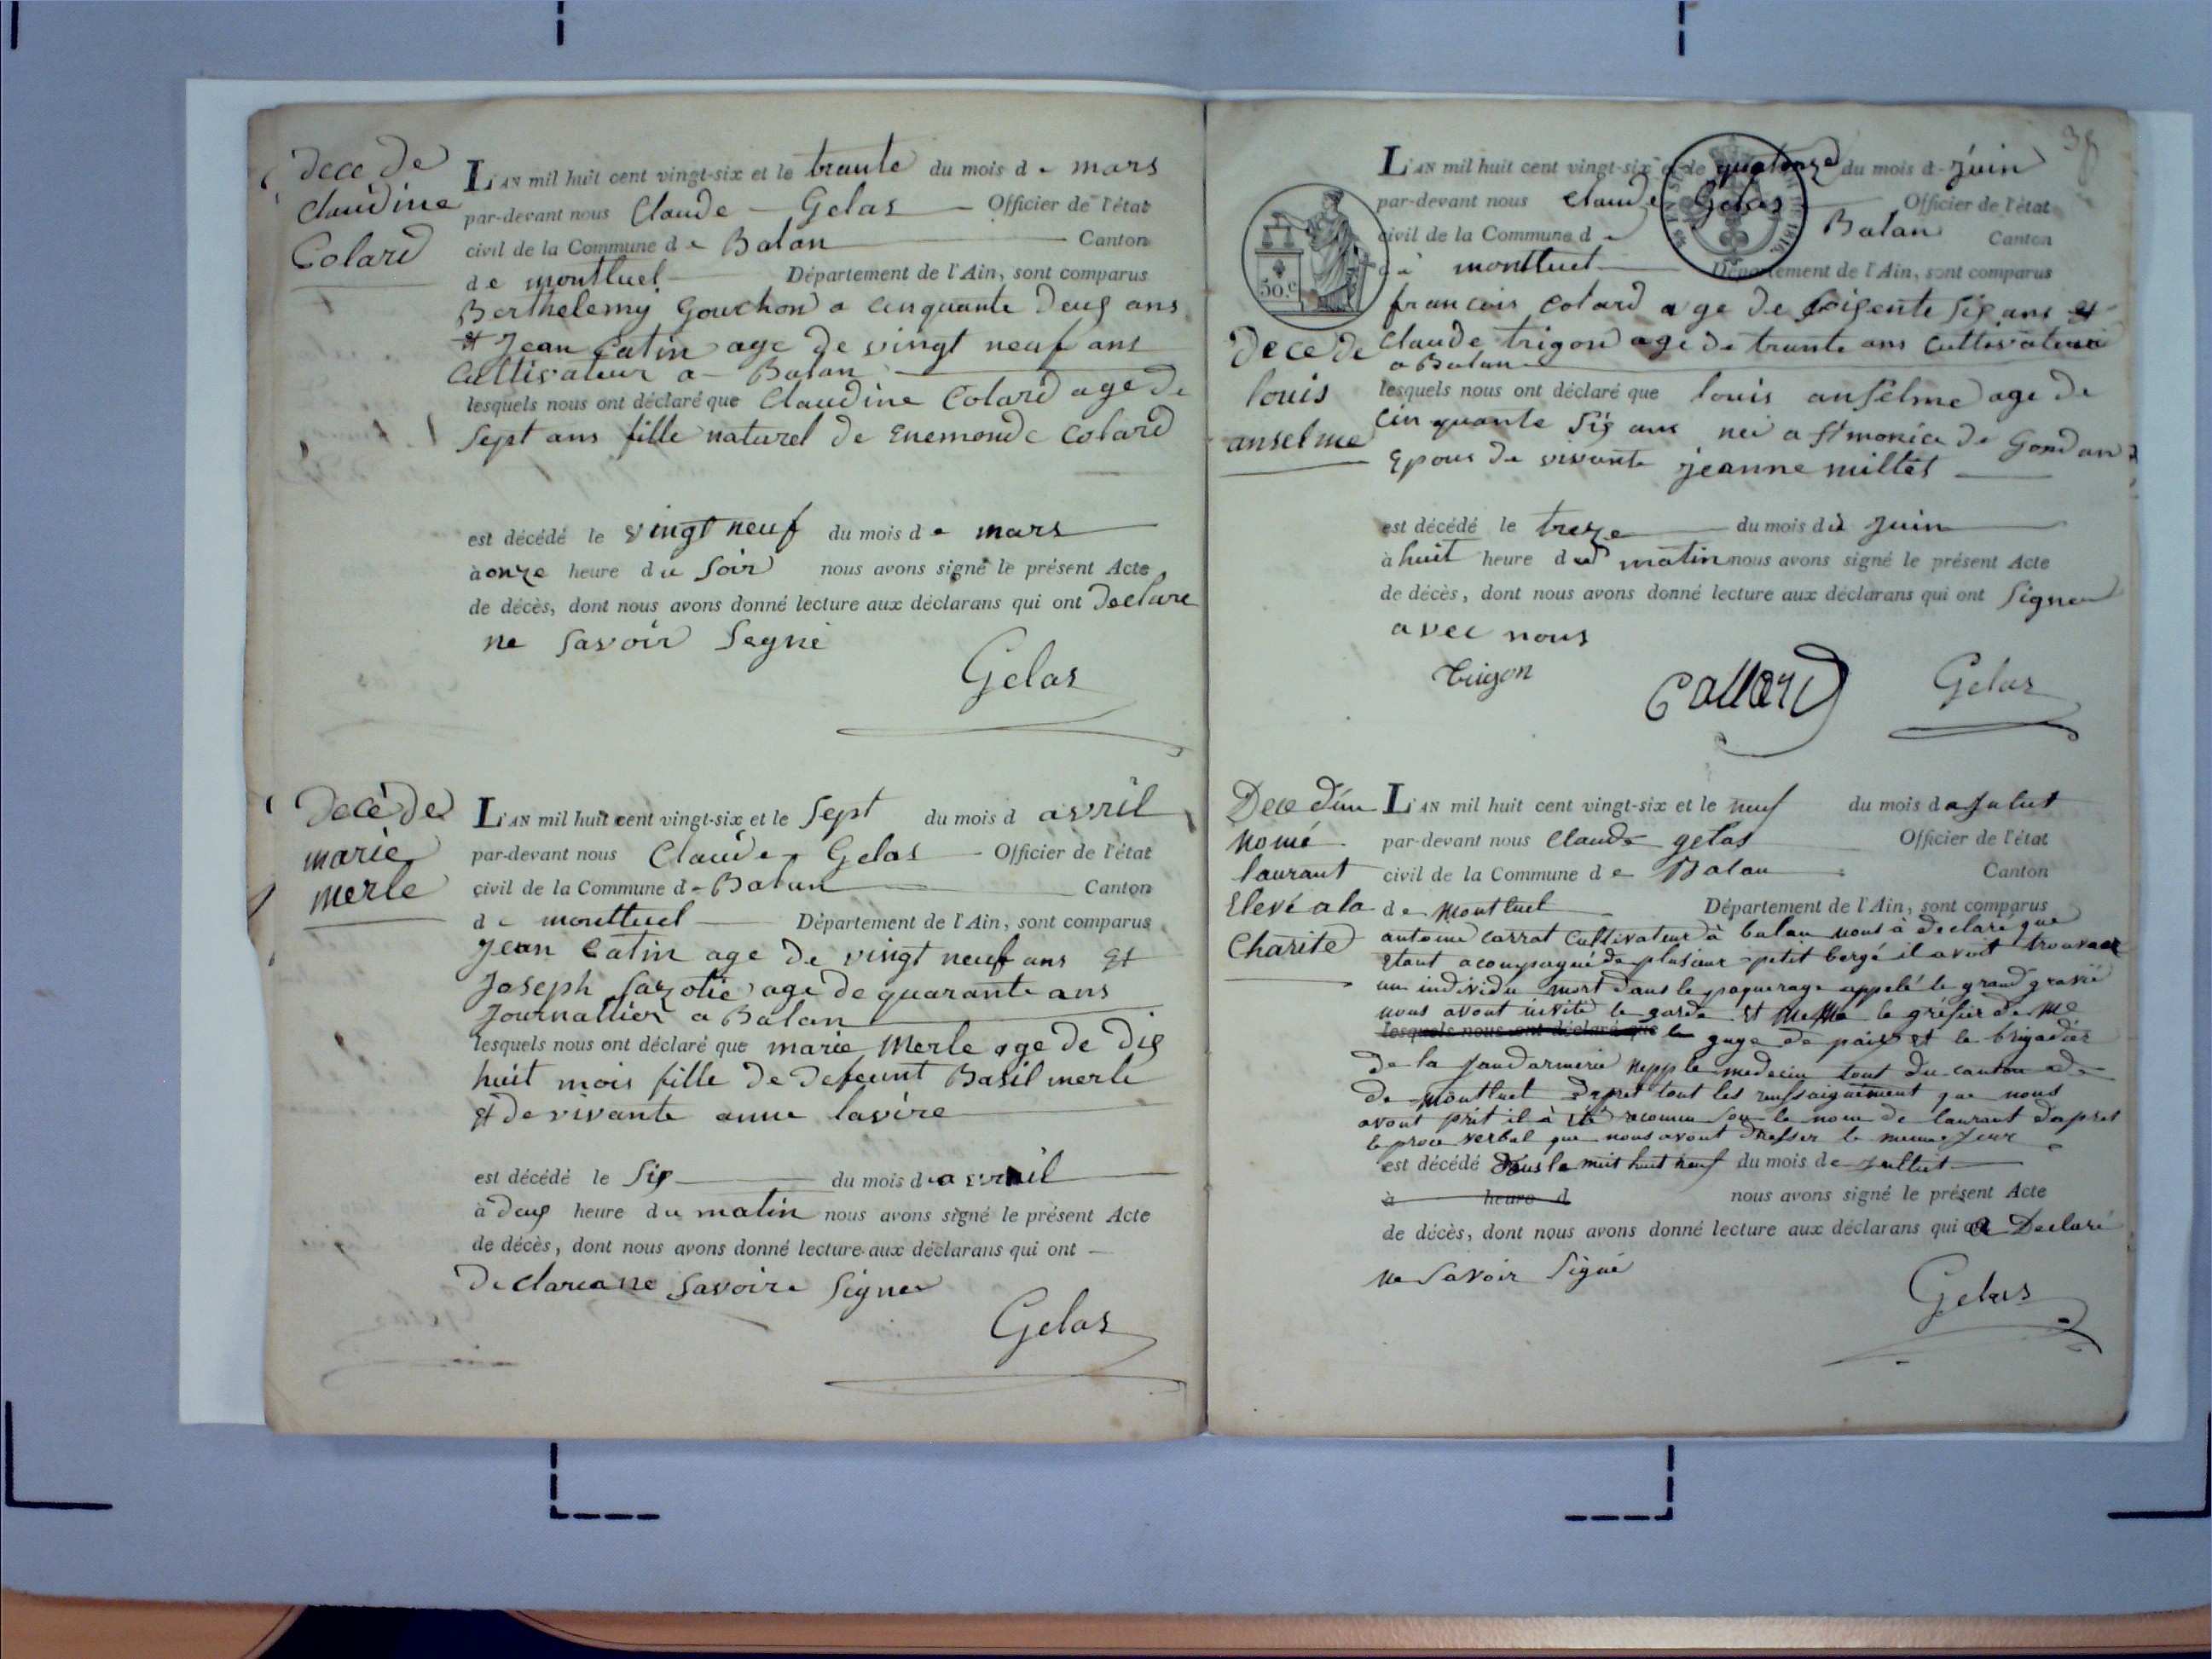 dece de
claudine
Colard
L'AN mil huit cent vingt-six et le trante du mois de mars
par-devant nous Claude Gelas Officier de l'état
civil de la Commune de Balan Canton
de montluel Département de l'Ain, sont comparus
Berthelemy Gouchon a cinquante deux ans
et Jean Catin age de vingt neuf ans
Cultivateur a Balan
lesquels nous ont déclaré que Claudine Colard age de
sept ans fille naturel de Enemonde Colard
est décédé le vingt neuf du mois de mars
à onze heure du soir nous avons signé le présent Acte
de décès, dont nous avons donné lecture aux déclarans qui ont declare
ne savoir segné
Gelas
decè de
marie
merle
L'AN mil huit cent vingt-six et le sept du mois d avril
par-devant nous Claude Gelas Officier de l'état
civil de la Commune de Balan Canton
de montluel Département de l'Ain, sont comparus
Jean Catin age de vingt neuf ans et
Joseph age de quarante ans
Journallier a Balan
lesquels nous ont déclaré que marie Merle age de dix
huit mois fille de defeunt Basil merle
et de vivante anne lavire
est décédé le six du mois d avril
à deux heure du matin nous avons signé le présent Acte
de décès, dont nous avons donné lecture aux déclarans qui ont
declare ne savoire signer
Gelas
38
L'AN mil huit cent vingt-six et le quatorze du mois de juin
par-devant nous claude Gelas Officier de l'état
civil de la Commune de Balan Canton
de montluel Département de l'Ain, sont comparus
50.c
francois colard age de soisente six ans et
dece de
louis
anselme
claude trigon age de trante ans cultivateur
a Balan
lesquels nous ont déclaré que louis anselme age de
cinquante six ans né a st de
Epous de vivante jeanne
est décédé le treze du mois de juin
à huit heure du matin nous avons signé le présent Acte
de décès, dont nous avons donné lecture aux déclarans qui ont signer
avec nous
Trigon Collard Gelas
Dece d'un
nomé
laurant
Elevé a la
Charité
L'AN mil huit cent vingt-six et le neuf du mois de
par-devant nous Claude gelas Officier de l'état
civil de la Commune de Balan Canton
de Montluel Département de l'Ain, sont comparus
antoine carrat cultivateur à balan nous à declaré que
etant acoupagné de plusieur petit bergé il avoit trouvaer
un individu mort dans le paquerage appelé le grand gravié
nous avont invité le garde et le gréfier de
lesquels nous ont déclaré que le guge de paix et le brigadier
de la le medecin tout du canton de
de Montluel dapret tout les que nous
avont prit il à été reconnu sou le nom de laurant dapret
le proce verbal que nous avont dresser le meme jour
est décédé dans la nuit huit neuf du mois de
à heure d nous avons signé le présent Acte
de décès, dont nous avons donné lecture aux déclarans qui a Declaré
ne savoir signé
Gelas